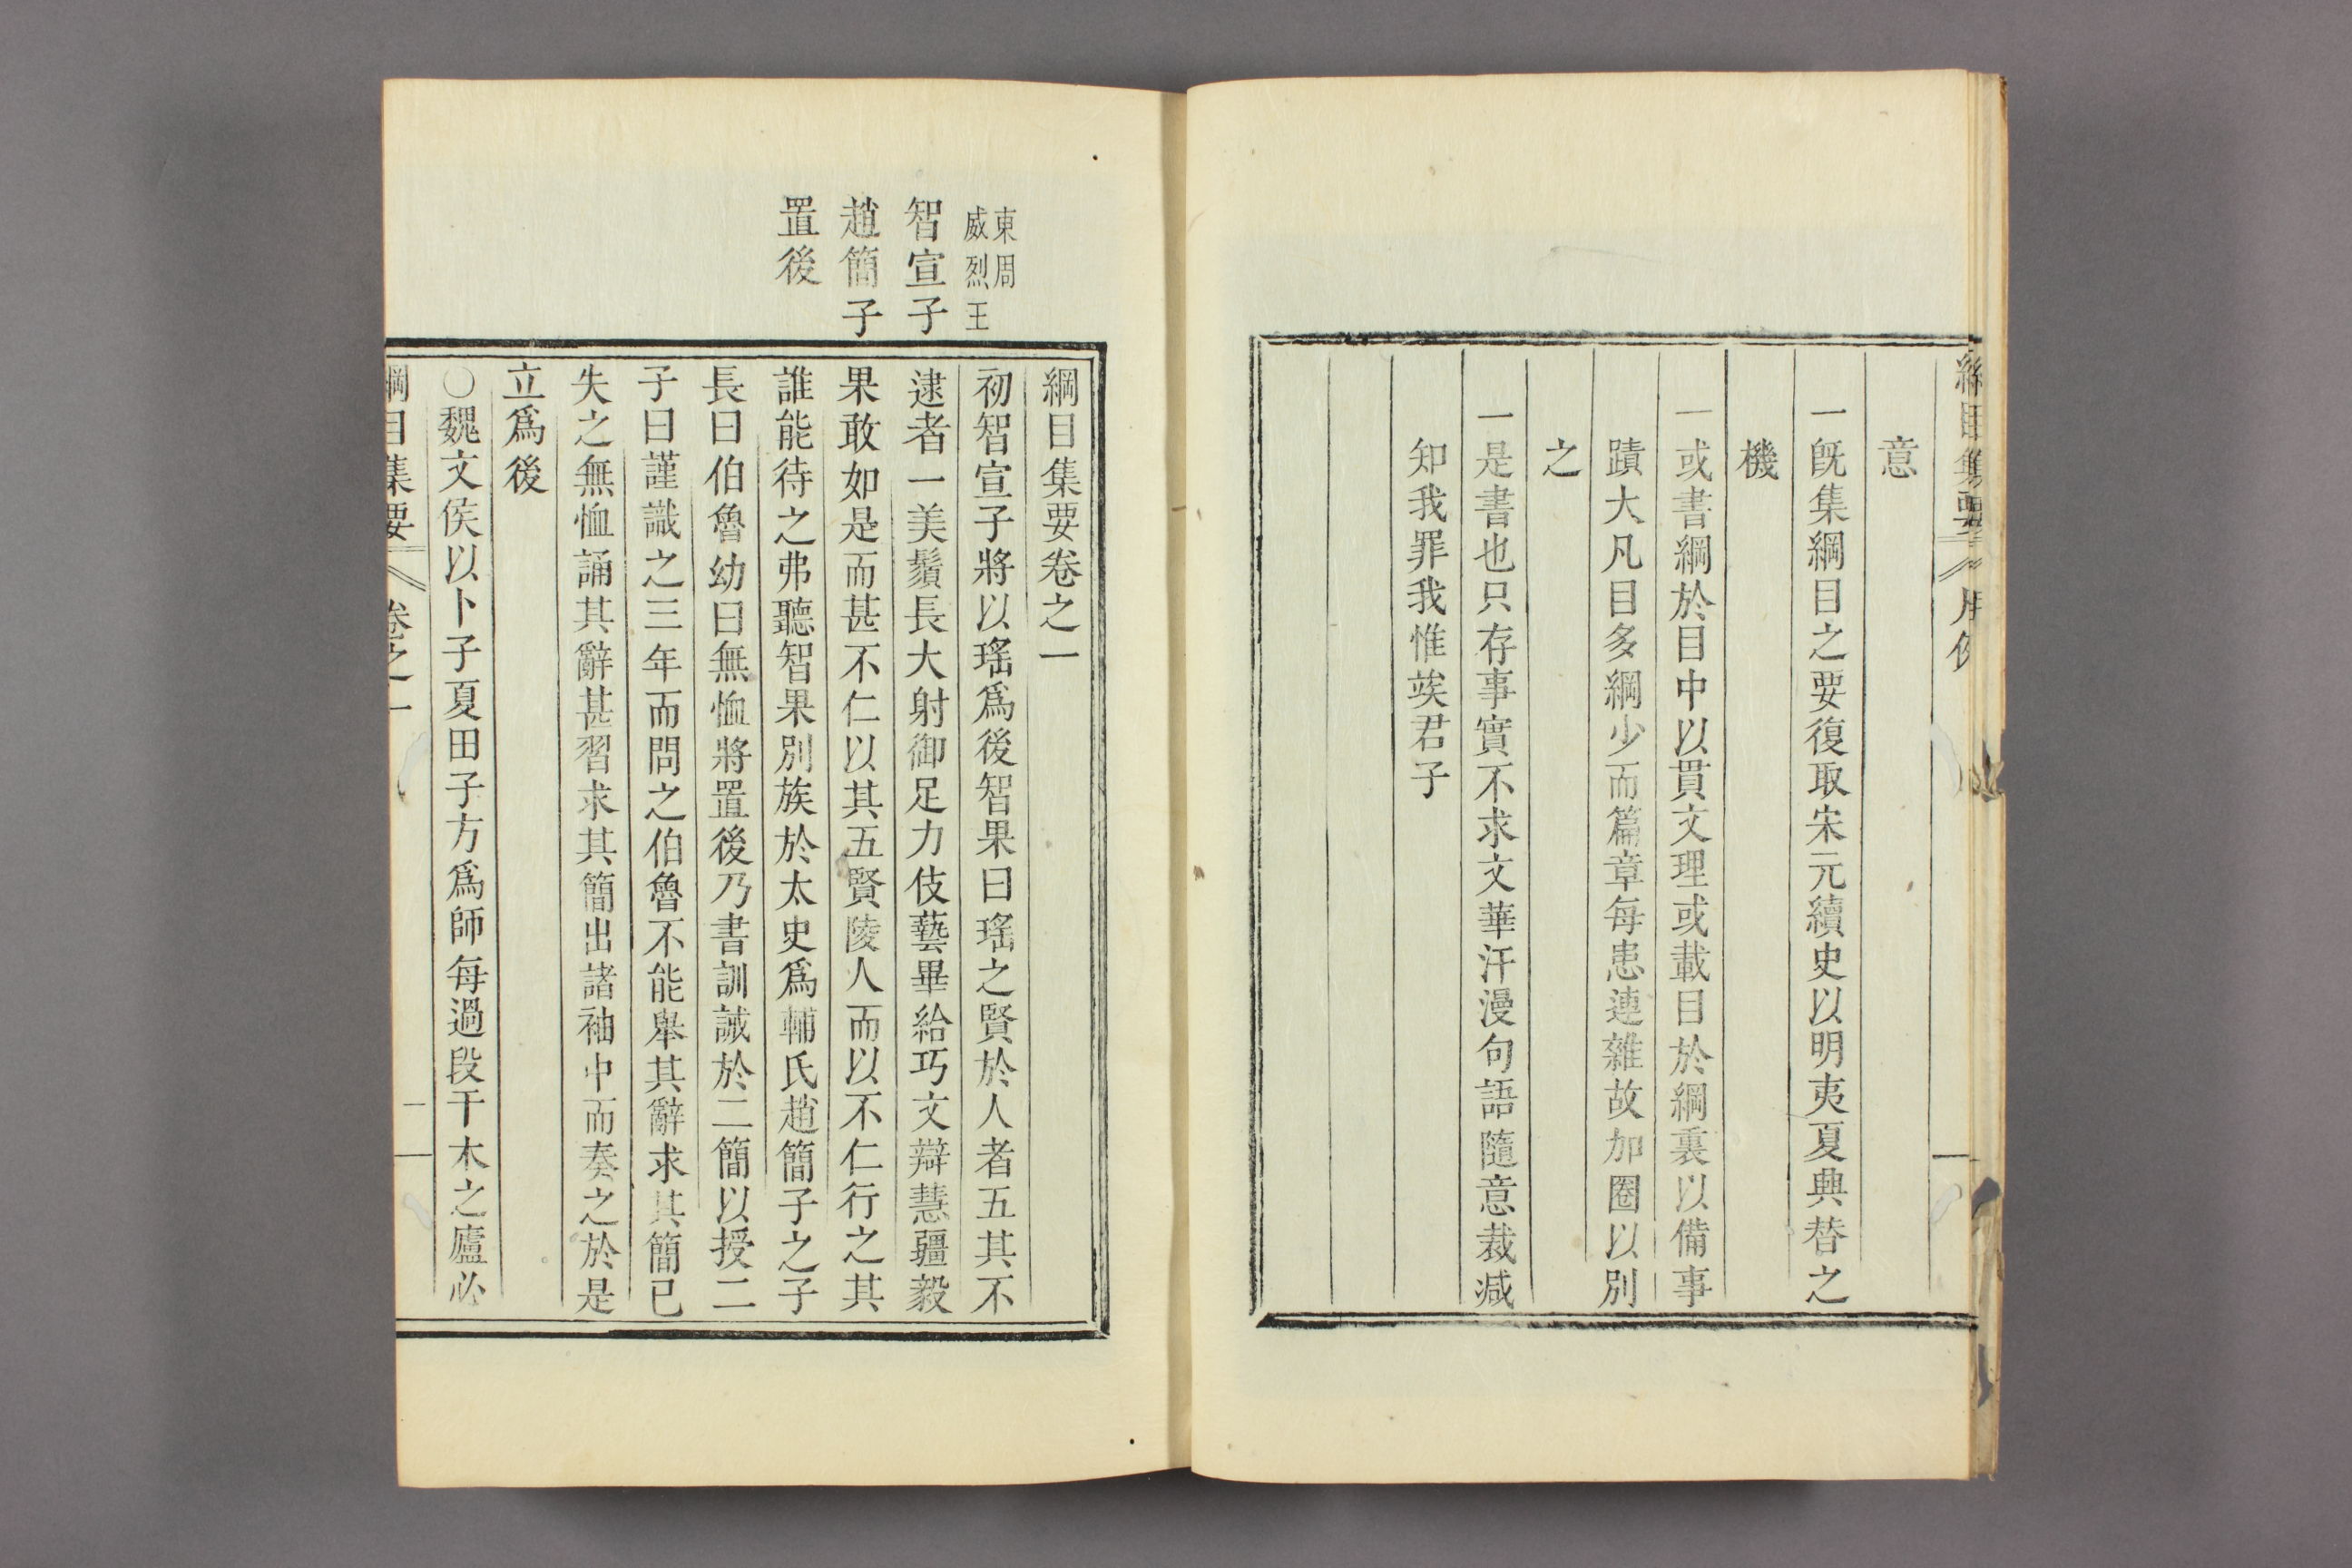 意
一既集綱目之要復取宋元續史以明夷夏典替之
機
一或書綱於目中以貫文理或載目於綱裏以備事
蹟大凡目多綱少而篇章每患連雜故加圈以別
之
一是書也只存事實不求文華汗漫句語隨意裁减
知我罪我惟竢君子
東周
威烈王
智宣子
趙簡子
置後
綱目集要卷之一
初智宣子將以瑤爲後智果曰瑤之賢於人者五其不
逮者一美鬚長大射御足力伎藝畢給巧文辯慧疆毅
果敢如是而甚不仁以其五賢陵人而以不仁行之其
誰能待之弗聽智果別族於太史爲輔氏趙簡子之子
長曰伯魯幼曰無恤將置後乃書訓誡於二簡以授二
子曰謹識之三年而問之伯魯不能舉其辭求其簡已
失之無恤誦其辭甚習求其簡出諸袖中而奏之於是
立爲後
○魏文侯以卜子夏田子方爲師每過段干木之廬必
綱目集要 卷之一 一